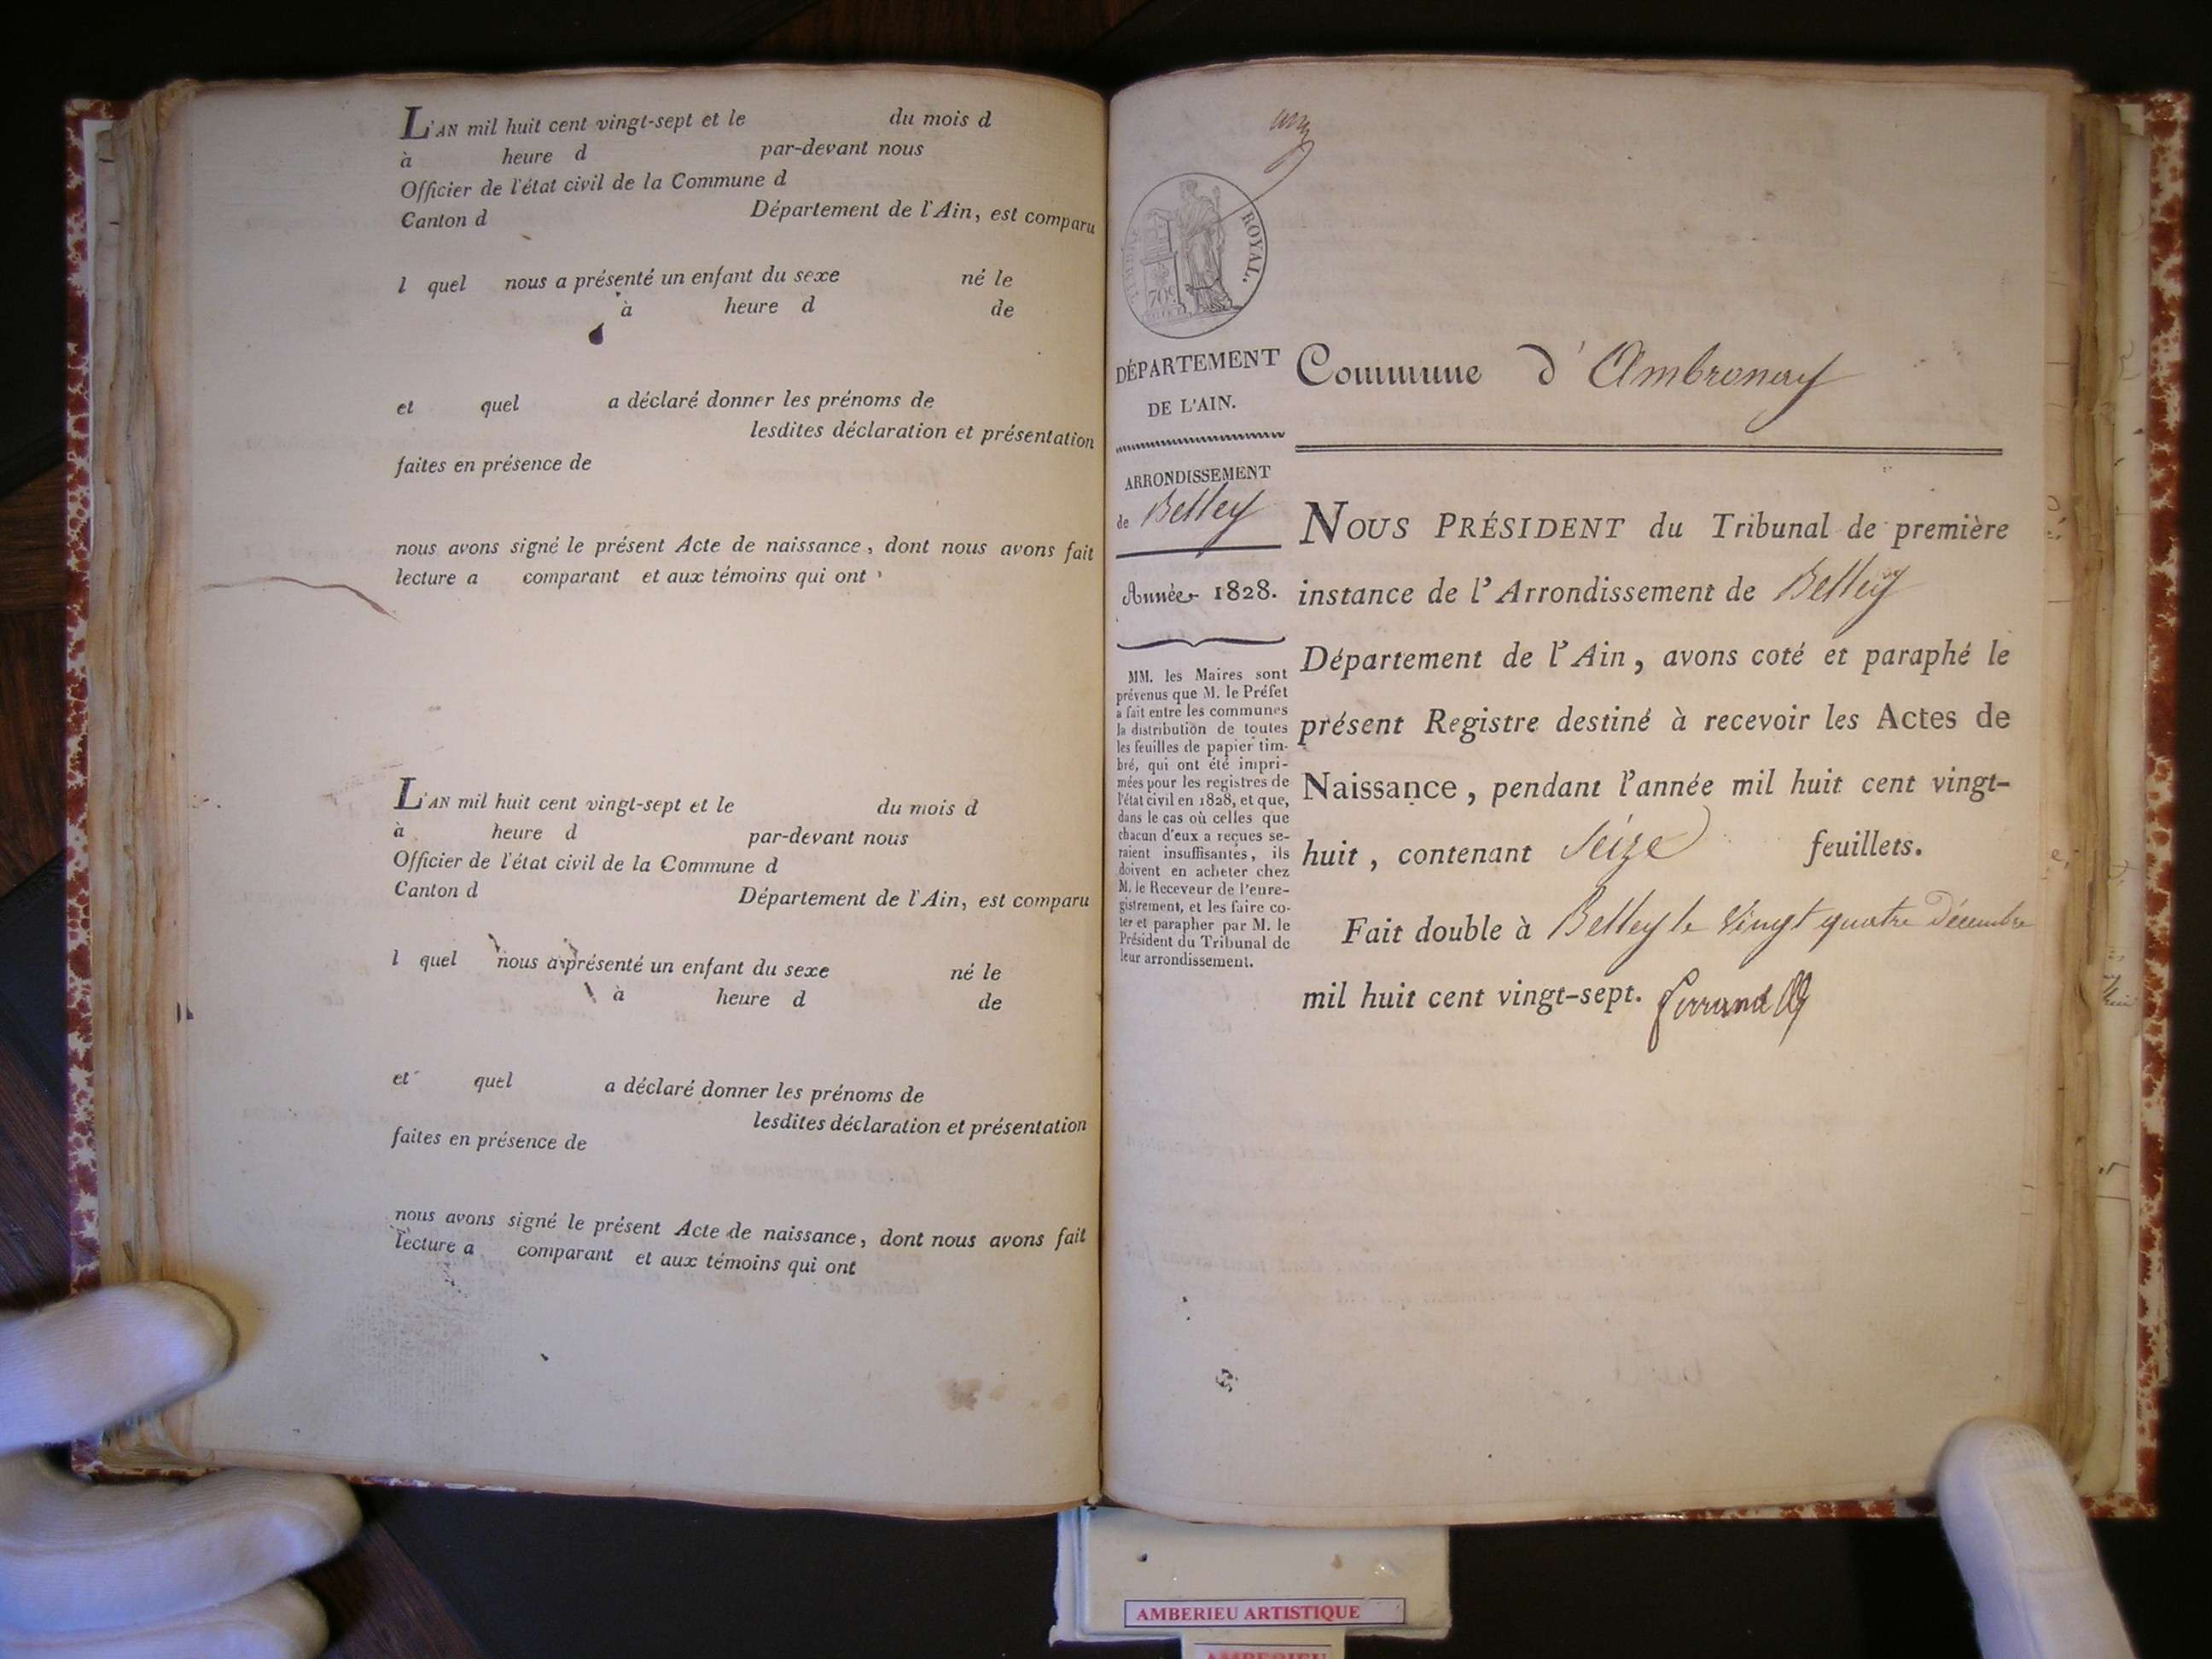 L'AN mil huit cent vingt-sept et le du mois d
à heure d par-devant nous
Officier de l'état civil de la Commune d
Canton d Département de l'Ain, est comparu
l quel nous a présenté un enfant du sexe né le
à heure d de
et quel a déclaré donner les prénoms de
lesdites déclaration et présentation
faites en présence de
nous avons signé le présent Acte de naissance, dont nous avons fait
lecture a comparant et aux témoins qui ont
L'AN mil huit cent vingt-sept et le du mois d
à heure d par-devant nous
Officier de l'état civil de la Commune d
Canton d Département de l'Ain, est comparu
l quel nous a présenté un enfant du sexe né le
à heure d de
et quel a déclaré donner les prénoms de
lesdites déclaration et présentation
faites en présence de
nous avons signé le présent Acte de naissance, dont nous avons fait
lecture a comparant et aux témoins qui ont
TIMBRE ROYAL.
70c
DÉPARTEMENT
DE L'AIN.
ARRONDISSEMENT
de Belley
Année 1828.
MM. les Maires sont
prévenus que M. le Préfet
a fait entre les communes
la distribution de toutes
les feuilles de papier tim-
bré, qui ont été impri-
mées pour les registres de
l'état civil en 1828, et que,
dans le cas où celles que
chacun d'eux a reçues se-
raient insuffisantes, ils
doivent en acheter chez
M. le Receveur de l'enre-
gistrement, et les faire co-
ter et parapher par M. le
Président du Tribunal de
leur arrondissement.
Commune d'Ambronay
NOUS PRÉSIDENT du Tribunal de première
instance de l'Arrondissement de Belley
Département de l'Ain, avons coté et paraphé le
présent Registre destiné à recevoir les Actes de
Naissance, pendant l'année mil huit cent vingt-
huit, contenant Seize feuillets.
Fait double à Belley le Vingt quatre Décembre
mil huit cent vingt-sept.
AMBERIEU ARTISTIQUE
AMBERIEU